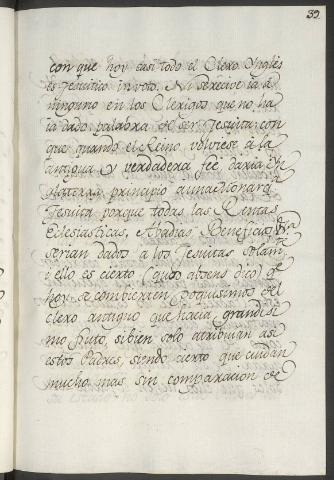 39.
con que hoy casi todo el Clero Yngles
es Jesuitico in voto. Ni se recive ia á
ninguno en los Clerigos que no ha
ia dado palabra de ser Jesuita: con
que quando el Reino volviese a la
antigua y verdadera feè, daria Yn
glaterra principio a una Monarq.ª
Jesuita porque todas las Rentas
Eclesiasticas, Abadias, Beneficios, &
serian dados a los Jesuitas solam.te
i ello es cierto (quod attens dico) q.e
hoy se combierten poquisimos del
clero antiguo que hacia grandisi
mo fruto, si bien solo atribuian asi
estos Padres, siendo cierto que cuidan
mucho mas sin comparacion de